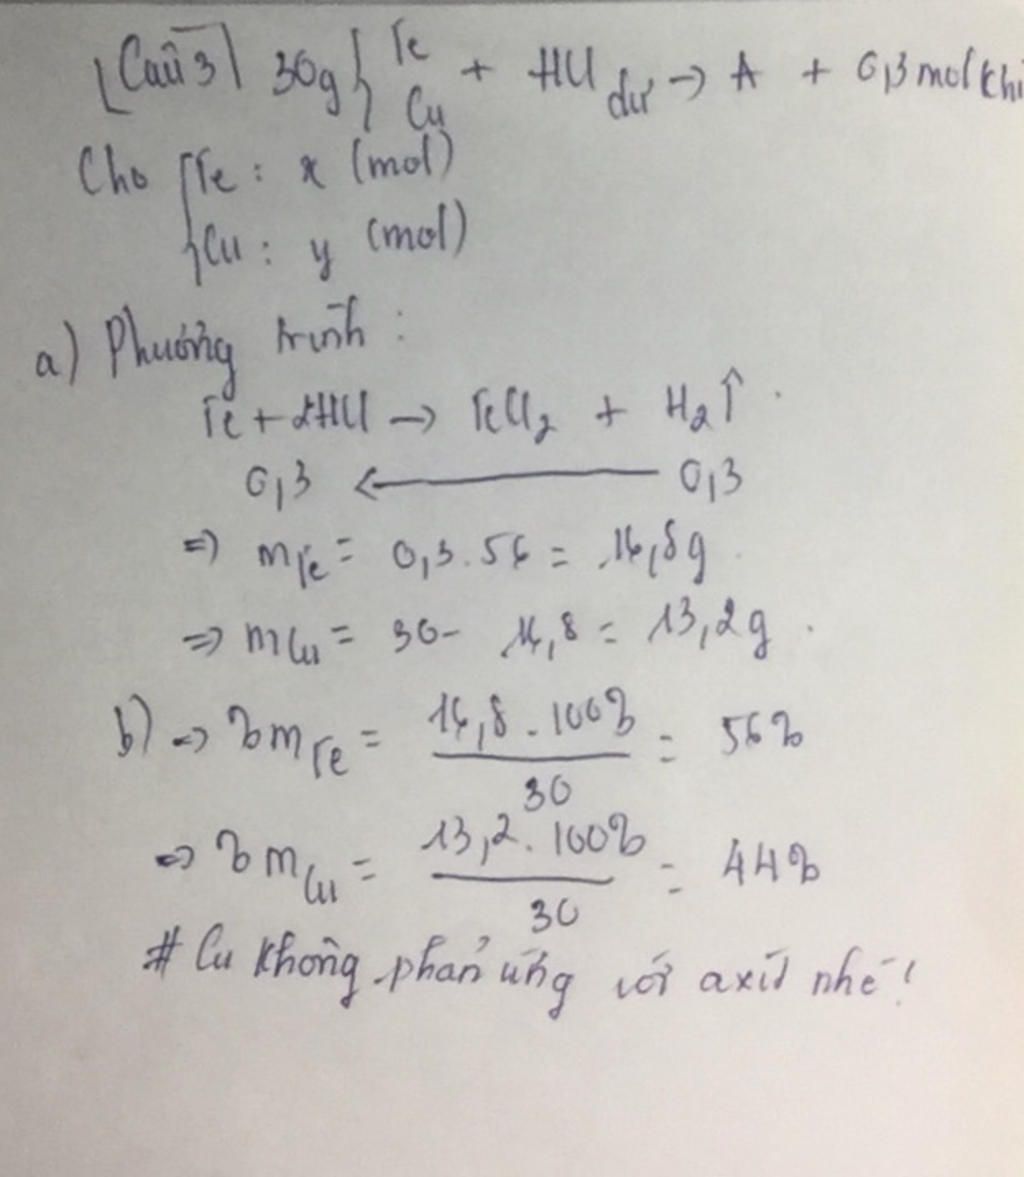 [Câu 3] 30g { Fe + HCl dư → A + 0,3 mol khí
Cu
Cho { Fe : x (mol)
Cu : y (mol)
a) Phương trình :
Fe + 2HCl → FeCl2 + H2↑.
0,3 ← 0,3
=> mFe = 0,3.56 = 16,8g.
=> mCu = 30 - 16,8 = 13,2g.
b) => %mFe = 16,8 . 100% / 30 = 56%
=> %mCu = 13,2 . 100% / 30 = 44%
# Cu không phản ứng với axit nhé !